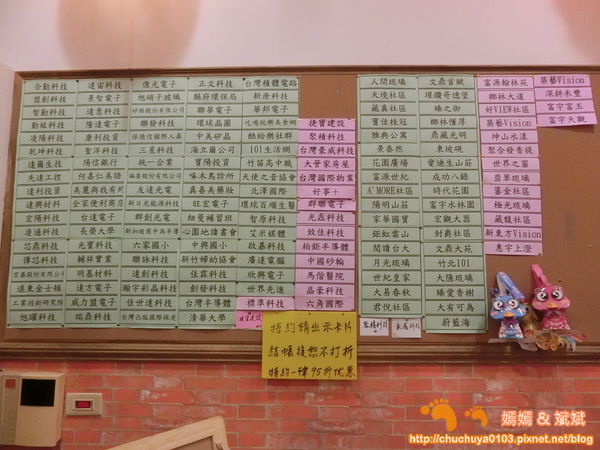 合勤科技
盟創科技
智勤科技
勤紘科技
凌陽科技
乾坤科技
達爾生技
先達工控
達利投資
達興材料
宏陽科技
凌通科技
芯鼎科技
傳芯科技
宏碁股份有限公司
遠東金士頓
工業技術研究院
旭曜科技
達宙科技
景智電子
達意科技
隆達電子
康利投資
聖洋科技
陽信銀行
何嘉仁美語
全家便利商店
台達電子
長榮大學
光寶科技
輔祥實業
明基材料
達方電子
威力盟電子
瑞鼎科技
億光電子
旭硝子玻璃
矽格股份有限公司
聯發科技
保德信國際人壽
三星科技
統一企業
友達光電
群創光電
六家國小
聯詠科技
達創科技
瀚宇彩晶科技
佳世達科技
台灣凸版國際採光
正文科技
縣府環保局
聯華電子
環球晶圓
中美矽晶
海立爾公司
寶陽投資
啄木鳥診所
真善美藥妝
旺宏電子
細曼補習班
心園地讀書會
中興國小
新竹婦幼協會
佳霖科技
群創科技
台灣半導體
清華大學
台灣積體電路
新唐科技
華邦電子
吃喝玩樂美食網
酷哈樂社群
101生活網
竹苗高中職
天使之音協會
北澤國際
環球百順生醫
智原科技
艾米媒體
啟碁科技
廣達電腦
欣興電子
世界先進
標準科技
捷寶建設
聚積科技
台灣豪威科技
大管家房屋
台灣國際物業
好事+
群聯電子
光磊科技
致佳科技
柏鉅半導體
中國砂輪
馬偕醫院
晶豪科技
六角國際
人間琉璃
天境社區
藏真社區
寶佳桂冠
雅典公寓
景泰然
花園廣場
富源世紀
A'MORE社區
陽明山莊
家華國寶
鉅虹雲山
閱讀台大
月光琉璃
世紀皇家
大易春秋
君悅社區
文鼎首賦
璀鑽哥德堡
臻之御
椰林懷厚
鼎藏光明
東坡硯
愛迪生山莊
成功八錄
時代花園
富宇水林園
宏觀大器
封爵社區
文鼎大苑
竹北101
大隱琉璃
臻愛香榭
大有可為
蔚藍海
富源翰林苑
椰林大道
好VIEW社區
築藝Vision
坤山水漾
聚合發香禔
世界之富
翡翠琉璃
鎏金社區
極光琉璃
藏馥社區
新東方Vision
惠宇上澄
築藝Vision
深耕禾豐
富宇富玉
富宇天觀
聚積科技
長庚科技
特約請出示卡片
結帳後恕不打折
特約一律95折優惠
嫣嫣 & 斌斌
http://chuchuya0103.pixnet.net/blog